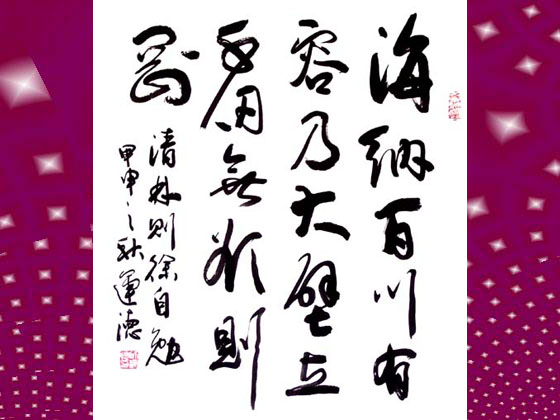 海納百川有
容乃大壁立
千仞無欲則
剛
清林則徐自勉
甲申之秋運德